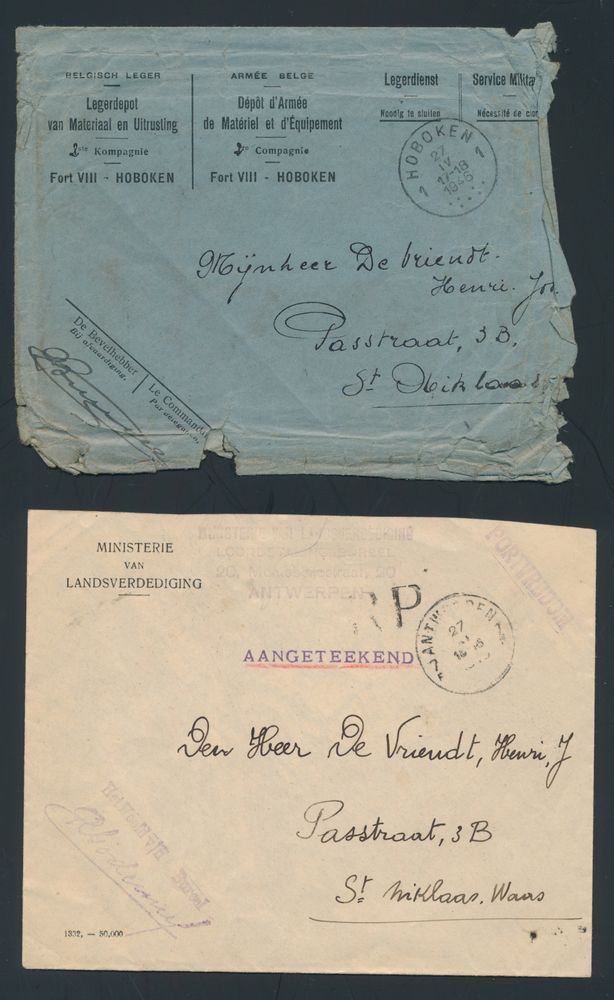 BELGISCH LEGER
Legerdepot
van Materiaal en Uitrusting
2ste Kompagnie
Fort VIII - HOBOKEN
ARMÉE BELGE
Dépôt d'Armée
de Matériel et d'Équipement
2e Compagnie
Fort VIII - HOBOKEN
Legerdienst
Noodig te sluiten
Service Milita
Nécessité de clor
1 HOBOKEN 1
27
IV
17-18
1946
Mijnheer De Vriendt.
Henri. Jos
Passtraat, 3 B.
St Niklaas
De Bevelhebber
Bij afvaardiging.
Le Commandan
Par délégation.
MINISTERIE
VAN
LANDSVERDEDIGING
MINISTERIE VAN LANDSVERDEDIGING
20, 20
ANTWERPEN
PORTVRIJDOM
RP
ANTWERPEN
27
AANGETEEKEND
Den Heer De Vriendt, Henri, J
Passtraat, 3 B
St Niklaas. Waas
Bureel
1332, — 50,000